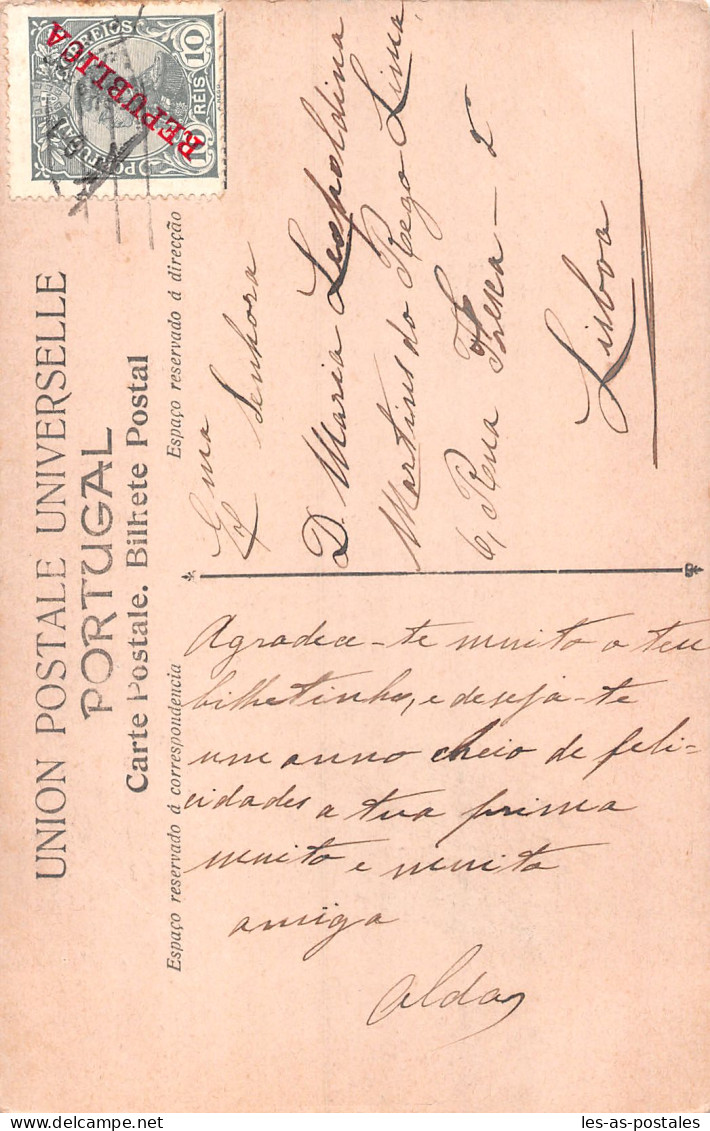 UNION POSTALE UNIVERSELLE
PORTUGAL
Carte Postale. Bilhete Postal
Espaço reservado á correspondencia
Espaço reservado á direcção
CORREIOS
REPUBLICA
PORTUGAL
10 RÉIS 10
Ex ma Senhora
D. Maria Leopoldina
Martins do Rego Lima
6, Rua Fresca - 2
Lisboa
Agradece-te muito o teu
bilhetinho, e deseja-te
um anno cheio de feli-
cidades a tua prima
muito e muito
amiga
Alda
les-as-postales